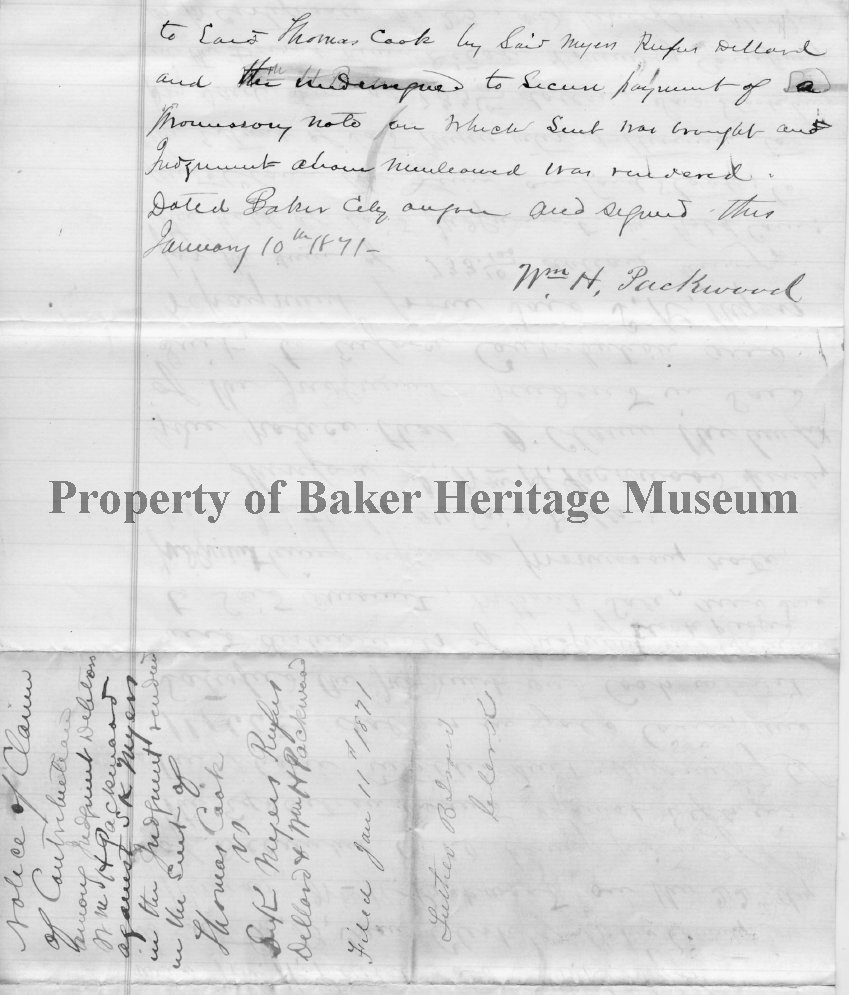 to Said Thomas Cook by Said Myers Rufus Dellard
and the undersigned to Secure payment of a
Promissory note on which Suit was brought and
Judgment above mentioned was rendered.
Dated Baker City Oregon and signed this
January 10th 1871-
Wm H. Packwood
Property of Baker Heritage Museum
Notice of Claim
of Contribution
among Judgment Debtors
Wm H Packwood
against S K Myers
in the Judgment rendered
in the Suit of
Thomas Cook
vs
Myers Rufus
Dellard & Wm H Packwood
Filed Jan 11th 1871
Luther
Clerk